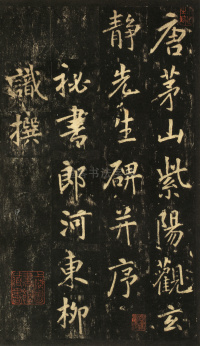 唐茅山紫陽觀玄
靜先生碑并序
祕書郎河東柳
識撰